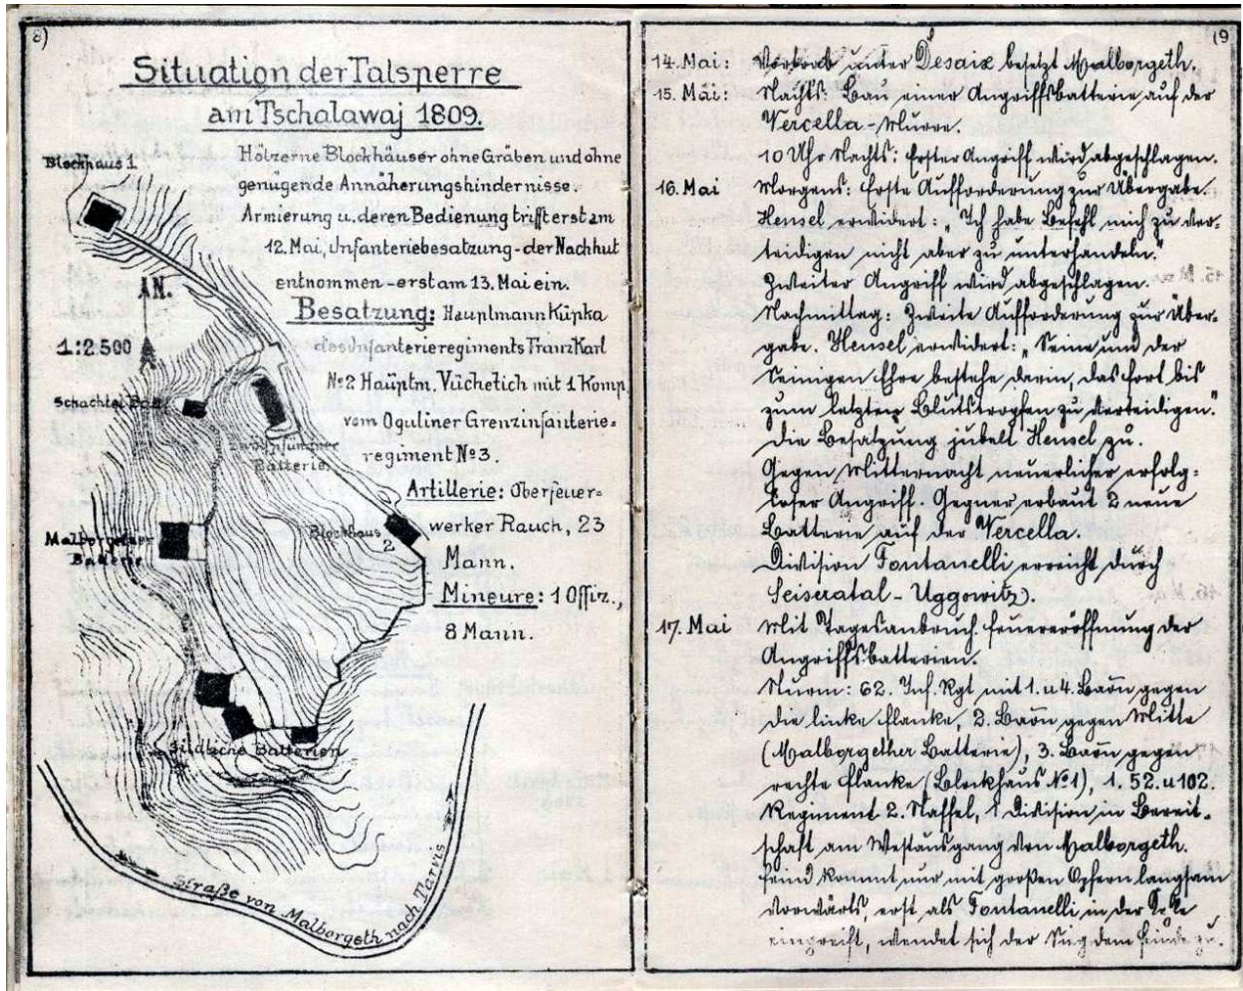 8)
Situation der Talsperre
am Tschalawaj 1809.
Blockhaus 1
Hölzerne Blockhäuser ohne Gräben und ohne
genügende Annäherungshindernisse.
Armierung u. deren Bedienung trifft erst am
12. Mai, Infanteriebesatzung - der Nachhut
entnommen - erst am 13. Mai ein.
N.
1:2.500
Besatzung: Hauptmann Kupka
des Infanterieregiments Franz Karl
№2 Hauptm. Vuchetich mit 1 Komp.
vom Oguliner Grenzinfanterie=
regiment №3.
Schachtel Batt.
Zwölfpfünder
Batterie.
Artillerie: Oberfeuer=
werker Rauch, 23
Mann.
Mineure: 1 Offiz.,
8 Mann.
Blockhaus
2
Malborgether
Batterie
Südliche Batterien
Straße von Malborgeth nach Tarvis
(9
14. Mai: Vortrab unter Desaix besetzt Malborgeth.
15. Mai: Nachts: Bau einer Angriffsbatterie auf der
Vercella-Murre.
10 Uhr Nachts: Erster Angriff wird abgeschlagen.
16. Mai Morgens: Erste Aufforderung zur Übergabe.
Hensel erwidert: „Ich habe Befehl mich zu ver-
teidigen nicht aber zu unterhandeln."
Zweiter Angriff wird abgeschlagen.
Nachmittag: Zweite Aufforderung zur Über-
gabe. Hensel erwidert: „Seine und der
Seinigen Ehre bestehe darin, das Fort bis
zum letzten Blutstropfen zu verteidigen."
Die Besatzung jubelt Hensel zu.
Gegen Mitternacht neuerlicher erfolg=
loser Angriff. Gegner erbaut 2 neue
Batterie auf der Vercella.
Division Fontanelli erreicht durch
Seiseratal - Uggowitz.
17. Mai Mit Tagesanbruch Feuereröffnung der
Angriffsbatterien.
Sturm: 62. Inf. Rgt mit 1. u 4. Baon gegen
die linke Flanke, 2. Baon gegen Mitte
(Malborgether Batterie), 3. Baon gegen
rechte Flanke (Blockhaus №1), 1. 52. u 102.
Regiment 2. Staffel, 1 Division in Bereit-
schaft am Westausgang von Malborgeth.
Feind kommt nur mit großen Opfern langsam
vorwärts, erst als Fontanelli in der
eingreift, wendet sich der Sieg dem Feinde zu.